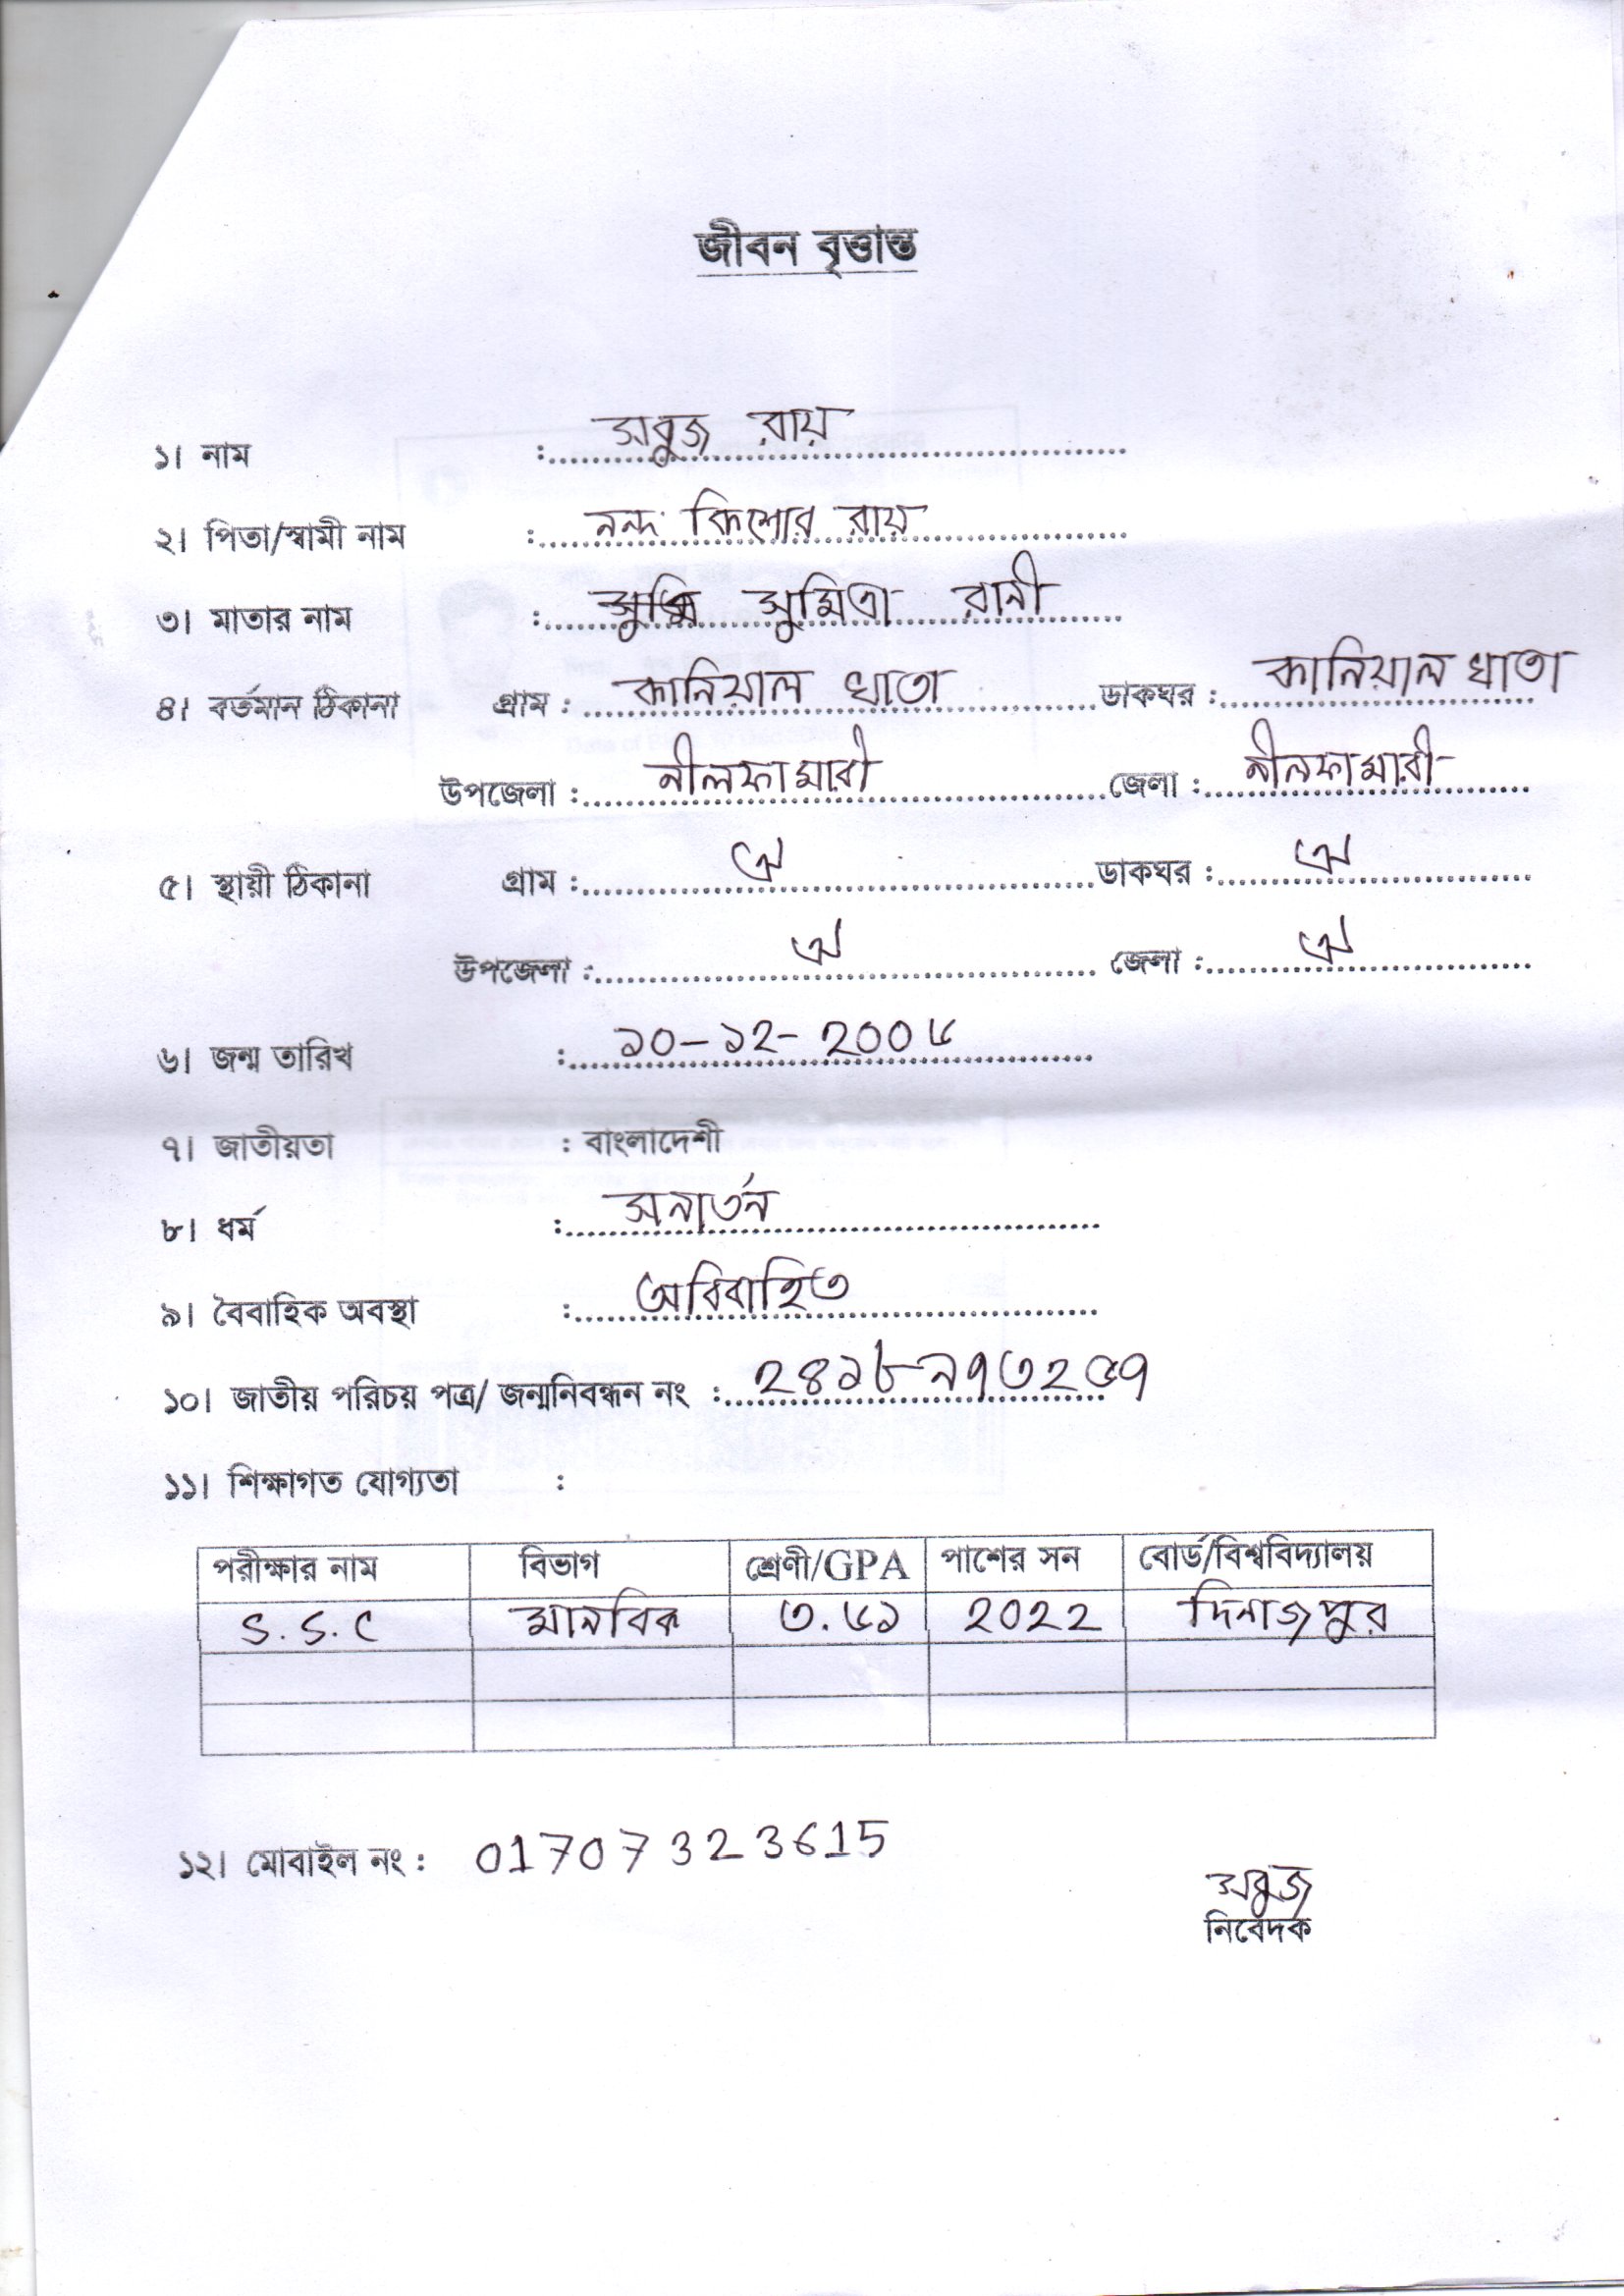 জীবন বৃত্তান্ত
১। নাম : সবুজ রায়
২। পিতা/স্বামী নাম : নন্দ কিশোর রায়
৩। মাতার নাম : সুমিত্রা রানী
৪। বর্তমান ঠিকানা গ্রাম : কানিয়াল খাতা ডাকঘর : কানিয়াল খাতা
উপজেলা : নীলফামারী জেলা : নীলফামারী
৫। স্থায়ী ঠিকানা গ্রাম : ঐ ডাকঘর : ঐ
উপজেলা : ঐ জেলা : ঐ
৬। জন্ম তারিখ : ১০-১২-২০০৬
৭। জাতীয়তা : বাংলাদেশী
৮। ধর্ম : সনার্তন
৯। বৈবাহিক অবস্থা : অবিবাহিত
১০। জাতীয় পরিচয় পত্র/ জন্মনিবন্ধন নং :
১১। শিক্ষাগত যোগ্যতা :
পরীক্ষার নাম বিভাগ শ্রেণী/GPA পাশের সন বোর্ড/বিশ্ববিদ্যালয়
S.S.C মানবিক ৩.৬১ ২০২২ দিনাজপুর
১২। মোবাইল নং : 01707323615
সবুজ
নিবেদক